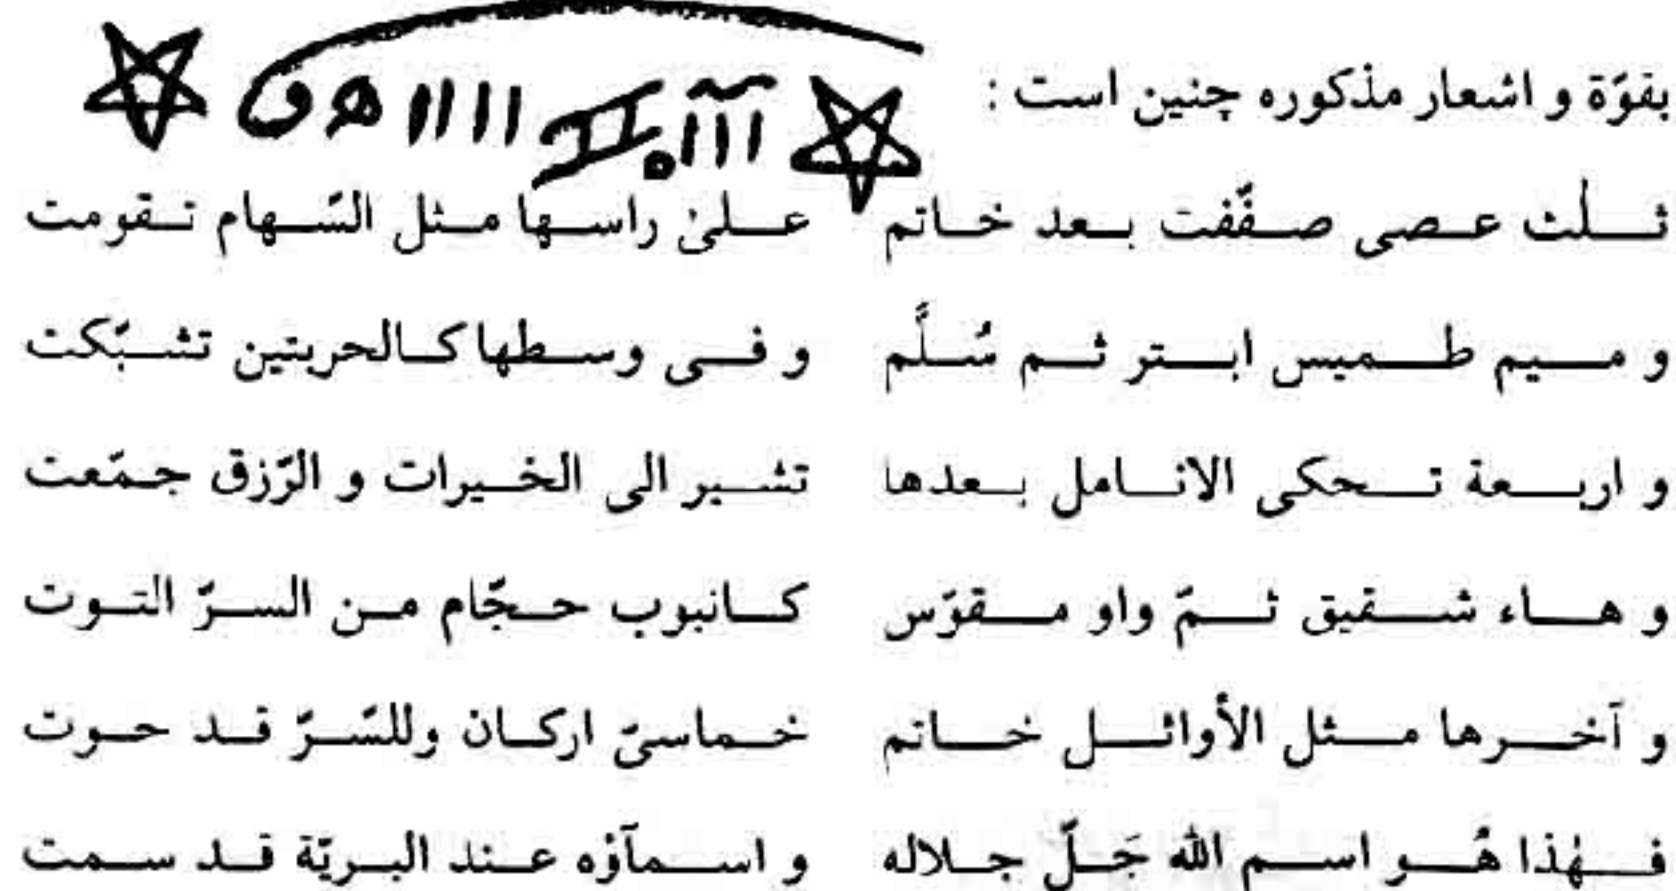 بقوّة و اشعار مذکوره چنین است :
ثلٰث عصی صفّفت بعد خاتم علیٰ راسها مثل السّهام تقومت
و میم طمیس ابتر ثم سُلَّم و فی وسطها کالحربتین تشبّکت
و اربعة تحکی الانامل بعدها تشیر الی الخیرات و الرّزق جمّعت
و هاء شقیق ثمّ واو مقوّس کانبوب حجّام من السرّ التوت
و آخرها مثل الأوائل خاتم خماسیّ ارکان وللسّرّ قد حوت
فهٰذا هُو اسم الله جَلّ جلاله و اسمآؤه عند البریّة قد سمت